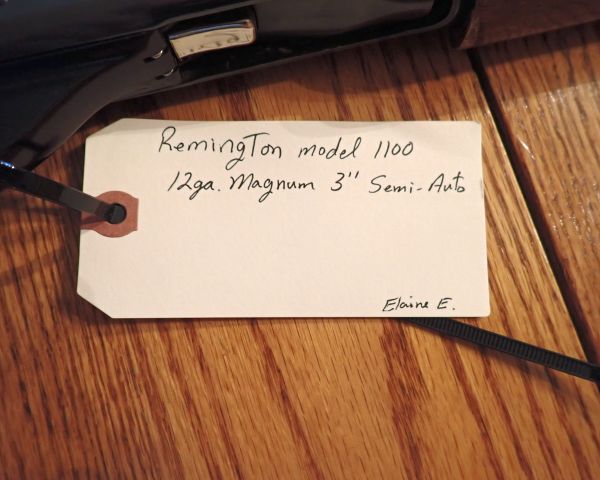 Remington model 1100
12ga. Magnum 3" Semi-Auto
Elaine E.